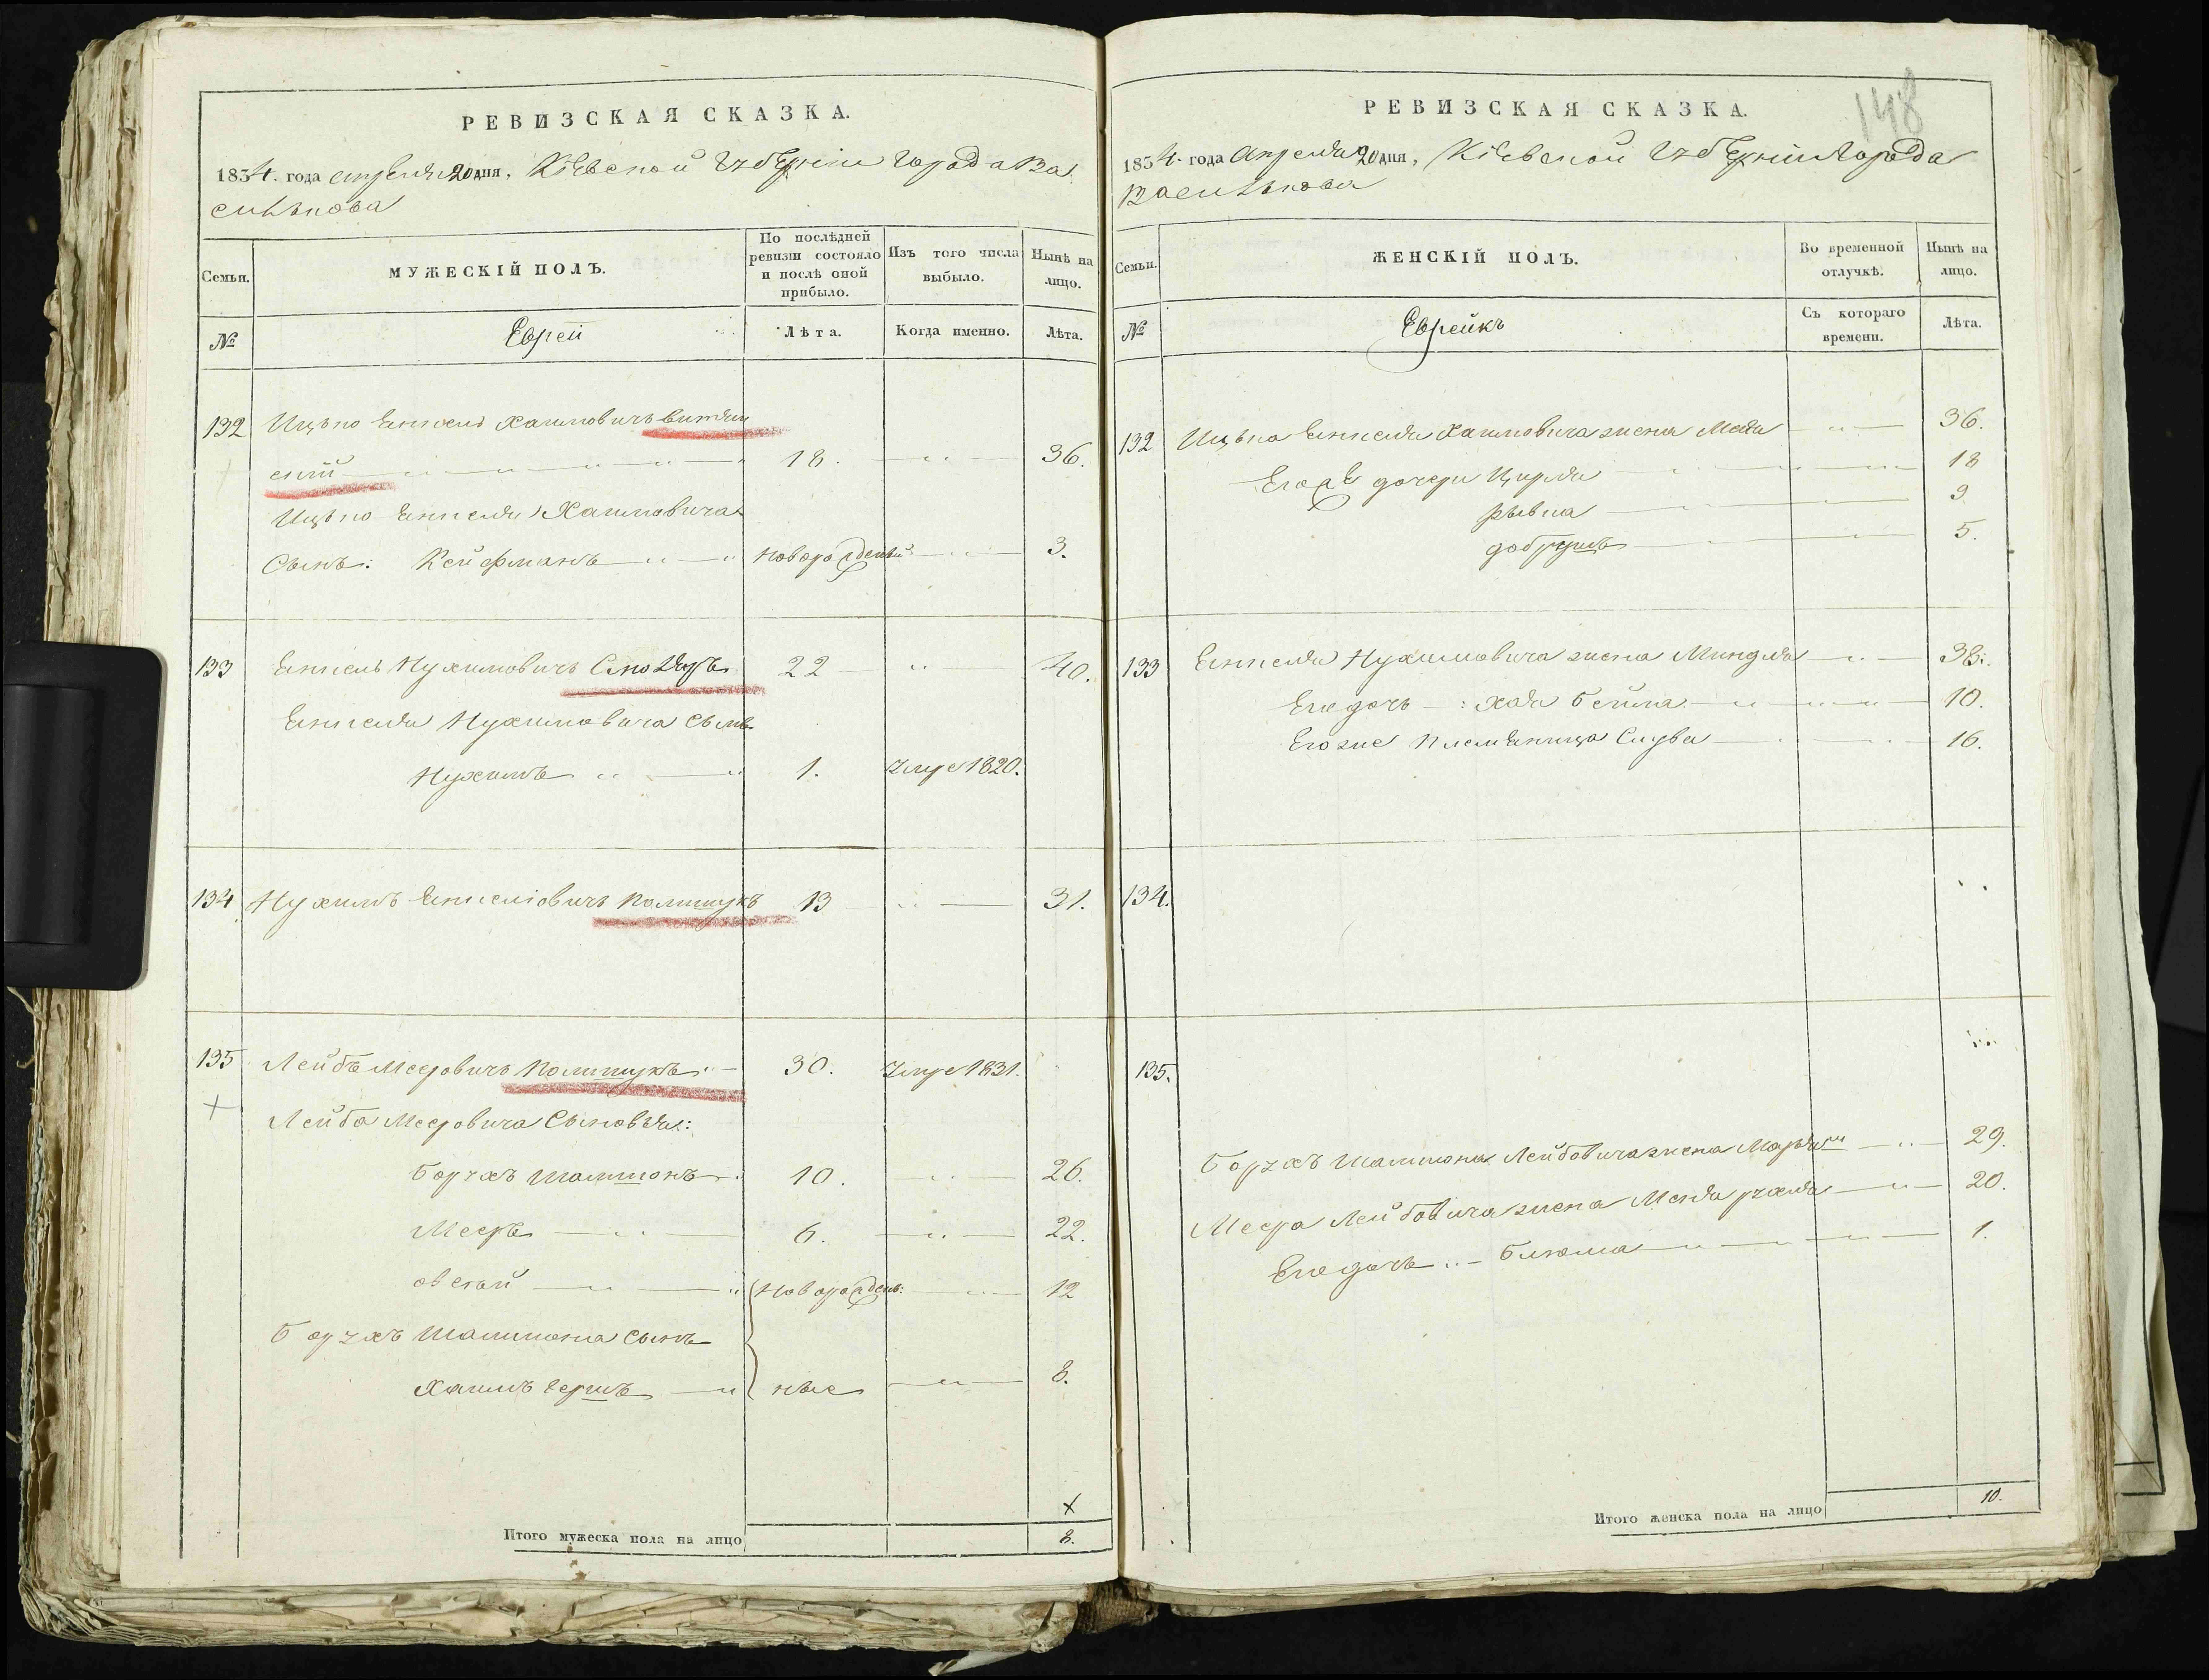 РЕВИЗСКАЯ СКАЗКА.
1834. года апреля 20 дня, Кіевской Губерніи города Ва
силькова
Семьи.
МУЖЕСКІЙ ПОЛЪ.
По послѣдней ревизіи состояло и послѣ оной прибыло.
Изъ того числа выбыло.
Нынѣ на лицо.
№
Еврей
Лѣта.
Когда именно.
Лѣта.
132 Ицько Енкель Хаимовичъ витян
скій 18. 36.
Ицько Енкеля Хаимовича
Сынъ: Кейфманъ новорожденный 3.
133 Енкель Нухимовичъ Сколяръ 22 40.
Енкеля Нухимовича сынъ
Нухимъ 1. Умре 1820.
134 Нухимъ Енкеліовичъ Полищукъ 13 31.
135 Лейбъ Мееровичъ Полищукъ 30. Умре 1831.
Лейба Мееровича Сыновья:
Борухъ Шалимонъ 10. 26.
Мееръ 6. 22.
овсѣй новорожден: 12
Борухъ Шалимона сынъ
Хаимъ Гершъ ные 8.
Итого мужеска пола на лицо 8.
148
РЕВИЗСКАЯ СКАЗКА.
1834. года Апреля 20 дня, Кіевской Губерніи города
Василькова
Семьи.
ЖЕНСКІЙ ПОЛЪ.
Во временной отлучкѣ.
Нынѣ на лицо.
№
Еврейкъ
Съ котораго времени.
Лѣта.
132 Ицька Енкеля Хаимовича жена Маля 36.
Его дочери Цирля 18
рывка 9
добрышъ 5.
133 Енкеля Нухимовича жена Миндля 38.
Его дочь: хая бейла 10.
Его же племѣница Слува 16.
134.
135.
Борухъ Шалимона Лейбовича жена Марьям 29.
Меера Лейбовича жена Маля рухля 20.
Его дочь Блюма 1.
Итого женска пола на лицо 10.